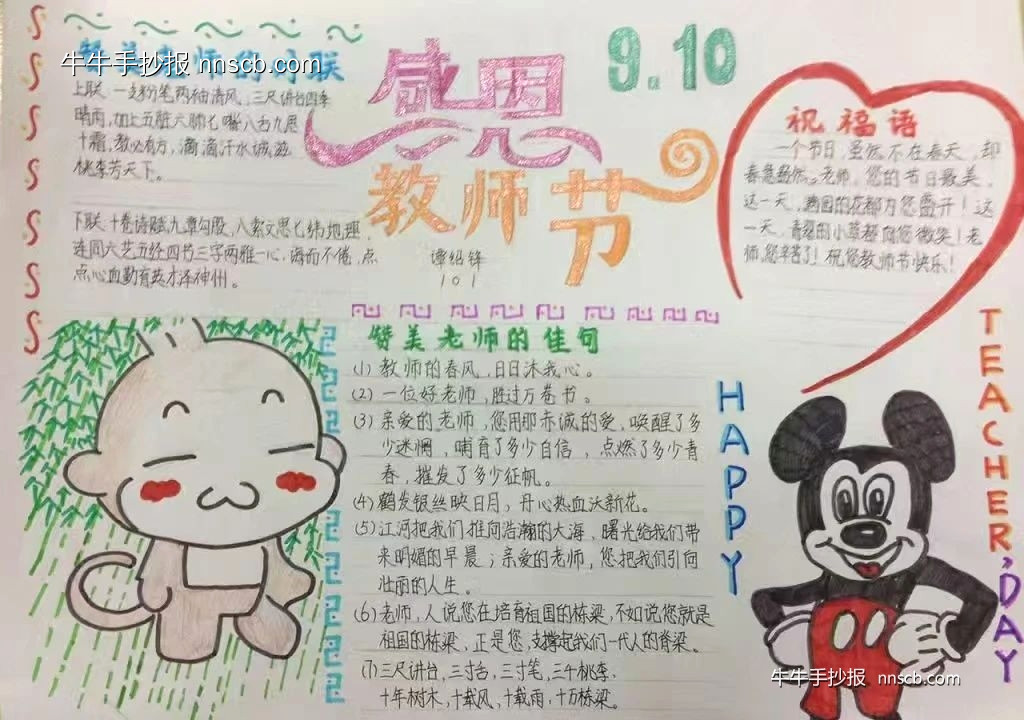 牛牛手抄报 nnscb.com
赞美老师的对联
上联 一支粉笔两袖清风，三尺讲台四季
晴雨，加上五脏六腑七嘴八舌九思
十霜，教必有方，滴滴汗水诚滋
桃李芳天下。
下联 十卷诗赋九章勾股，八索文思七纬地理，
连同六艺五经四书三字两雅一心，诲而不倦，点
点心血勤育英才泽神州。
感恩
教师节
9.10
谭绍锋
101
祝福语
一个节日，虽然不在春天，却
春意盎然。老师，您的节日最美，
这一天，满园的花都为您盛开！这
一天，青翠的小草都向您微笑！老
师，您辛苦了！祝您教师节快乐！
赞美老师的佳句
(1) 教师的春风，日日沐我心。
(2) 一位好老师，胜过万卷书。
(3) 亲爱的老师，您用那赤诚的爱，唤醒了多
少迷惘，哺育了多少自信，点燃了多少青
春，摧发了多少征帆。
(4) 鹤发银丝映日月，丹心热血沃新花。
(5) 江河把我们推向浩瀚的大海，曙光给我们带
来明媚的早晨；亲爱的老师，您把我们引向
壮丽的人生。
(6) 老师，人说您在培育祖国的栋梁，不如说您就是
祖国的栋梁，正是您，支撑起我们一代人的脊梁。
(7) 三尺讲台，三寸舌，三寸笔，三千桃李，
十年树木，十载风，十载雨，十万栋梁。
HAPPY
TEACHER'DAY
牛牛手抄报 nnscb.com